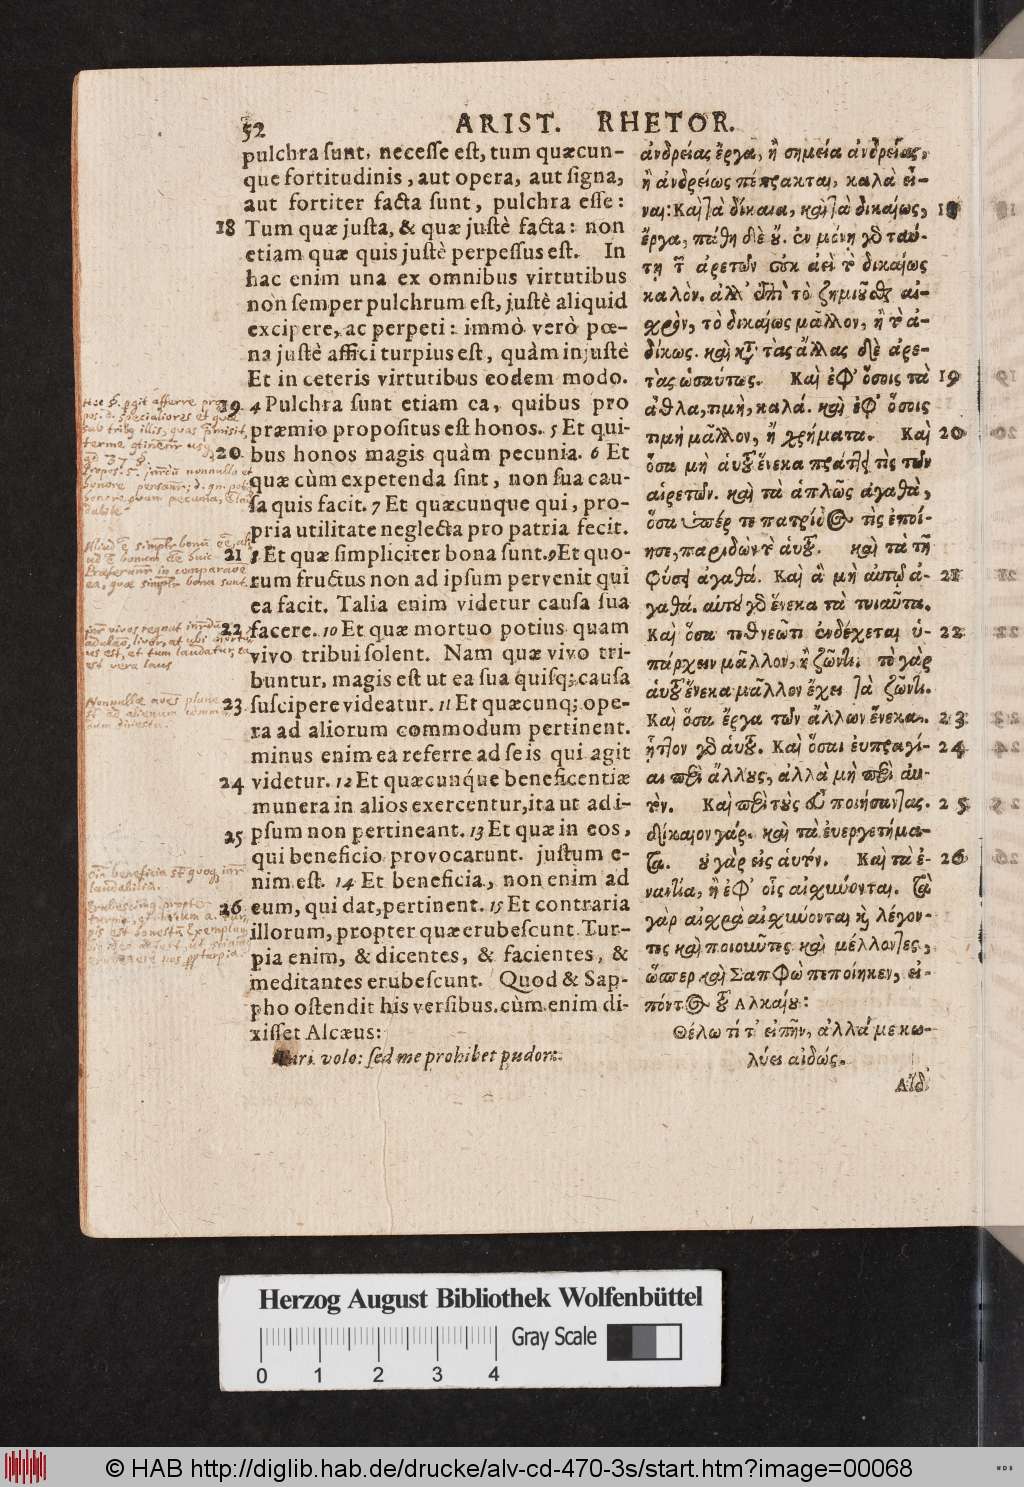 52
ARIST. RHETOR.
pulchra ſunt, neceſſe eſt, tum quæcun-
que fortitudinis, aut opera, aut ſigna,
aut fortiter facta ſunt, pulchra eſſe:
18 Tum quæ juſta, & quæ juſtè facta: non
etiam quæ quis juſtè perpeſſus eſt. In
hac enim una ex omnibus virtutibus
non ſemper pulchrum eſt, juſtè aliquid
excipere, ac perpeti: immò verò pœ-
na juſtè affici turpius eſt, quàm injuſtè
Et in ceteris virtutibus eodem modo.
19 4 Pulchra ſunt etiam ea, quibus pro
præmio propoſitus eſt honos. 5 Et qui-
20 bus honos magis quàm pecunia. 6 Et
quæ cùm expetenda ſint, non ſua cau-
ſa quis facit. 7 Et quæcunque qui, pro-
pria utilitate neglecta pro patria fecit.
21 8 Et quæ ſimpliciter bona ſunt. 9 Et quo-
rum fructus non ad ipſum pervenit qui
ea facit. Talia enim videtur cauſa ſua
22 facere. 10 Et quæ mortuo potius quam
vivo tribui ſolent. Nam quæ vivo tri-
buntur, magis eſt ut ea ſua quiſq; cauſa
23 ſuſcipere videatur. 11 Et quæcunq; ope-
ra ad aliorum commodum pertinent.
minus enim ea referre ad ſe is qui agit
24 videtur. 12 Et quæcunque beneficentiæ
munera in alios exercentur, ita ut ad i-
25 pſum non pertineant. 13 Et quæ in eos,
qui beneficio provocarunt. juſtum e-
nim eſt. 14 Et beneficia, non enim ad
26 eum, qui dat, pertinent. 15 Et contraria
illorum, propter quæ erubeſcunt. Tur-
pia enim, & dicentes, & facientes, &
meditantes erubeſcunt. Quod & Sap-
pho oſtendit his verſibus. cùm enim di-
xiſſet Alcæus:
volo: ſed me prohibet pudor.
ἀνδρείας ἔργα, ἢ σημεῖα ἀνδρείας,
ἢ ἀνδρείως πέπρακται, καλὰ εἶ-
ναι: Καὶ τὰ δίκαια, καὶ τὰ δικαίως,
ἔργα, πάθη δὲ οὔ. ἐν μόνῃ γὰρ ταύ-
τῃ τῶν ἀρετῶν οὐκ ἀεὶ τὸ δικαίως
καλόν. ἀλλ' ἐπὶ τὸ ζημιοῦσθαι αἰ-
χρὸν, τὸ δικαίως μᾶλλον, ἢ τὸ ἀ-
δίκως. καὶ κατὰ τὰς ἄλλας δὲ ἀρε-
τὰς ὡσαύτως. Καὶ ἐφ' ὅσοις τὰ 19
ἆθλα, τιμὴ, καλά. καὶ ἐφ' ὅσοις
τιμὴ μᾶλλον, ἢ χρήματα. Καὶ 20
ὅσα μὴ αὑτοῦ ἕνεκα πράττει τὶς τῶν
αἱρετῶν. καὶ τὰ ἁπλῶς ἀγαθὰ,
ὅσα ὑπέρ τε πατρίδος τὶς ἐποί-
ησε, παριδὼν τὸ αὑτοῦ. καὶ τὰ τῇ
φύσει ἀγαθά. Καὶ ἃ μὴ αὐτῷ ἀ- 21
γαθά. αὑτοῦ γὰρ ἕνεκα τὰ τοιαῦτα.
Καὶ ὅσα τεθνεῶτι ἐνδέχεται ὑ- 22
πάρχειν μᾶλλον, ἢ ζῶντι. τὸ γὰρ
αὑτοῦ ἕνεκα μᾶλλον ἔχει τὰ ζῶντι.
Καὶ ὅσα ἔργα τῶν ἄλλων ἕνεκα. 23
ἧττον γὰρ αὑτοῦ. Καὶ ὅσαι εὐπραγί- 24
αι περὶ ἄλλους, ἀλλὰ μὴ περὶ αὑ-
τόν. Καὶ περὶ τοὺς εὖ ποιήσαντας. 25
δίκαιον γάρ. καὶ τὰ εὐεργετήμα-
τα. οὐ γὰρ εἰς αὑτόν. Καὶ τὰ ἐ- 26
ναντία, ἢ ἐφ' οἷς αἰσχύονται. τὰ
γὰρ αἰσχρὰ αἰσχύονται καὶ λέγον-
τες καὶ ποιοῦντες καὶ μέλλοντες,
ὥσπερ καὶ Σαπφὼ πεποίηκεν, εἰ-
πόντος τοῦ Ἀλκαίου:
Θέλω τί τ' εἰπῆν, ἀλλά με κω-
λύει αἰδώς.
Αἴδ'
Herzog August Bibliothek Wolfenbüttel
Gray Scale
0 1 2 3 4
© HAB http://diglib.hab.de/drucke/alv-cd-470-3s/start.htm?image=00068